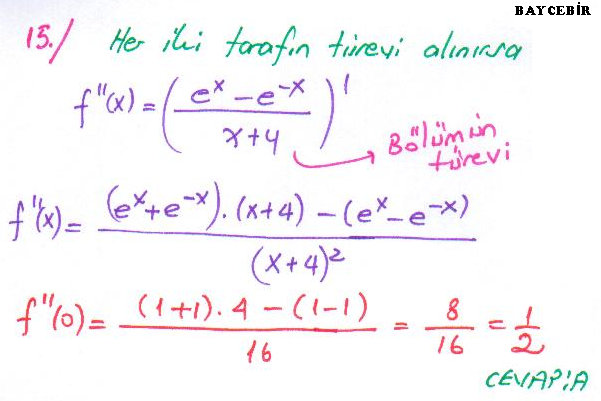 BAYCEBİR
15./ Her iki tarafın türevi alınırsa
f''(x) = ( (e^x - e^-x) / (x+4) )'
Bölümün
türevi
f''(x) = ((e^x + e^-x).(x+4) - (e^x - e^-x)) / (x+4)^2
f''(0) = ((1+1).4 - (1-1)) / 16 = 8/16 = 1/2
CEVAP:A